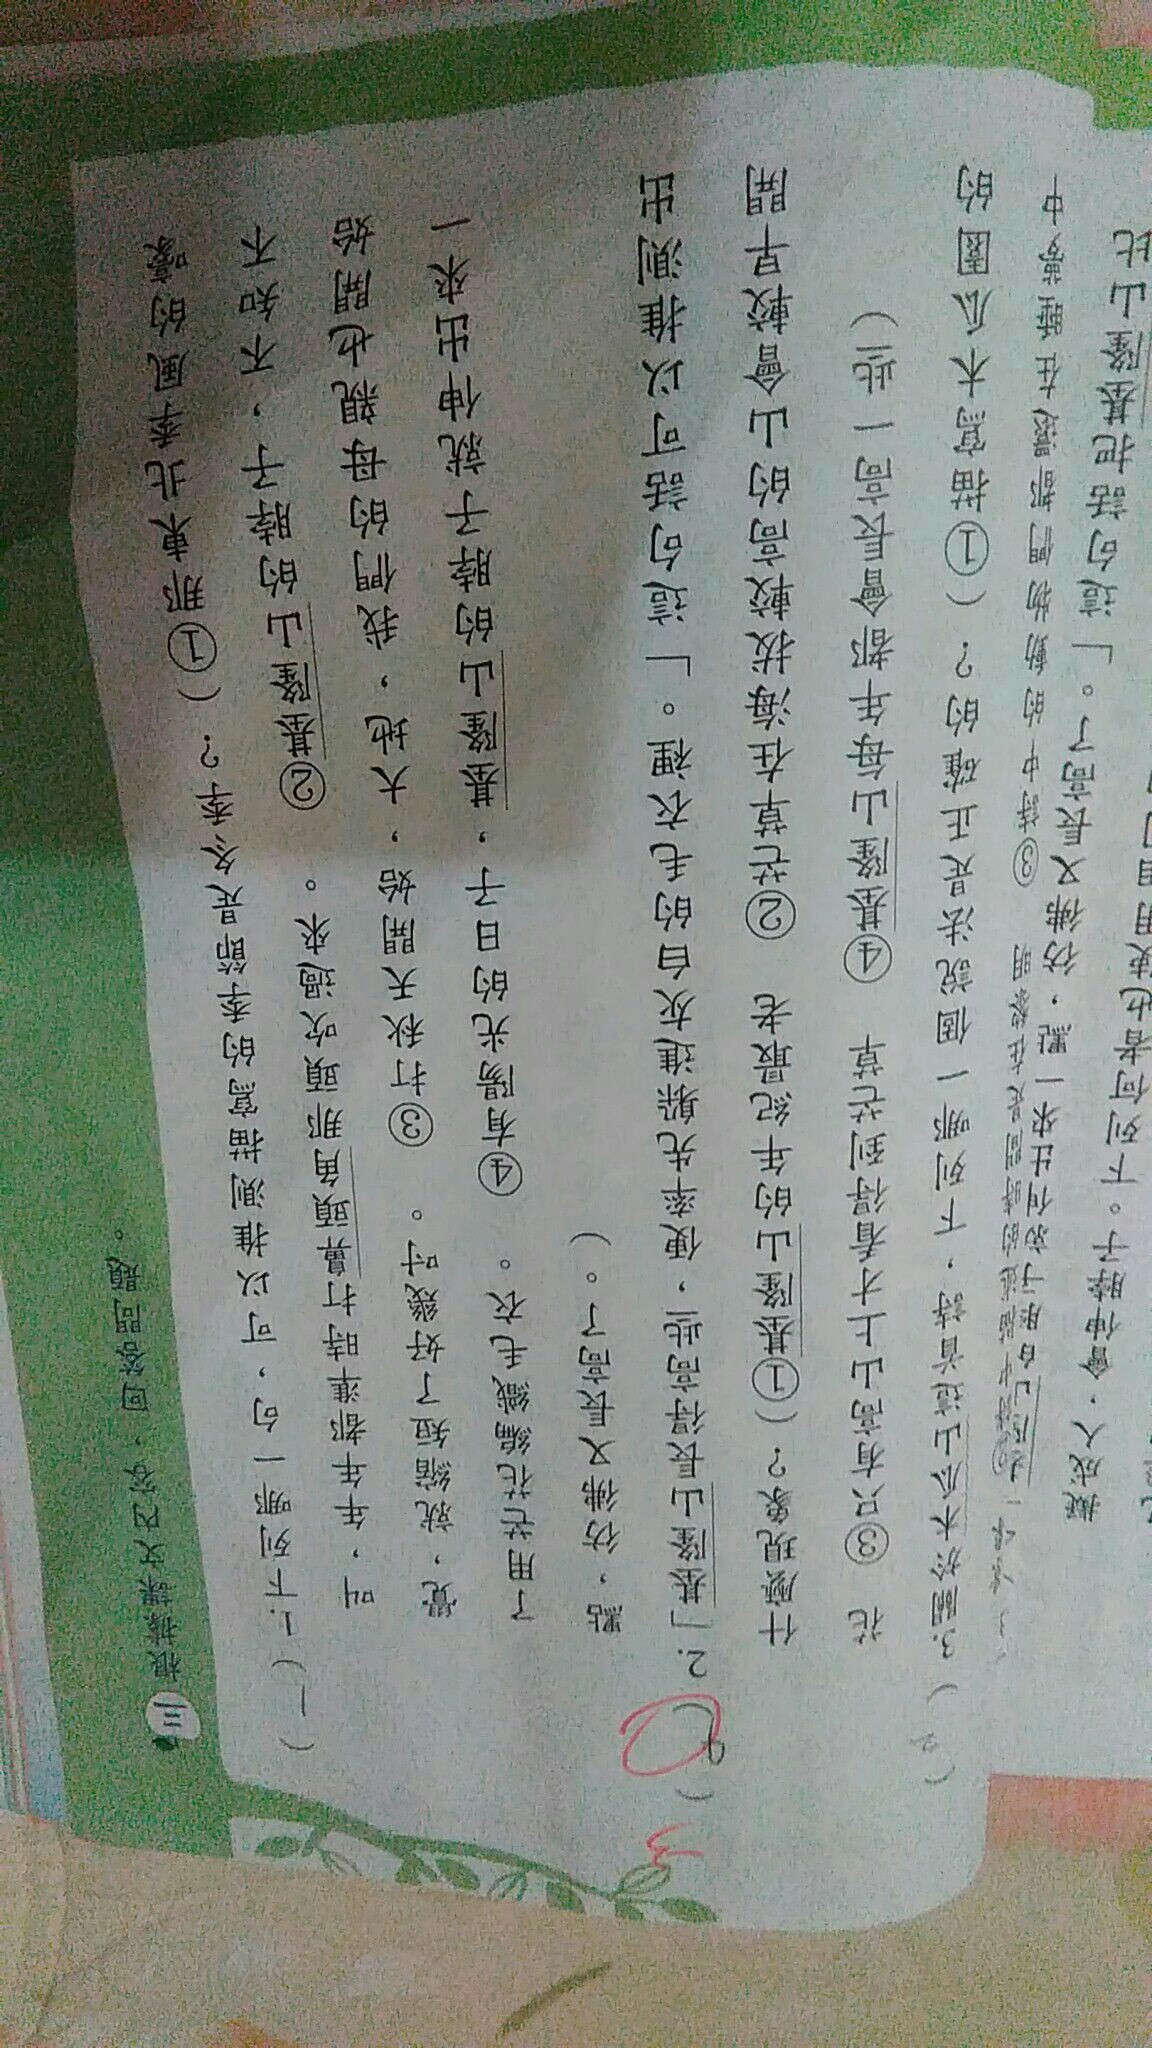 三 根據課文內容，回答問題。
( 1 ) 1. 下列哪一句，可以推測描寫的季節是冬季？( ①那東北季風的嚎
叫，年年都準時打鼻頭角那頭吹過來。 ②基隆山的脖子，不知不
覺，就縮短了好幾吋。 ③打秋天開始，大地，我們的母親也開始
了用芒花編織毛衣。 ④有陽光的日子，基隆山的脖子就伸出來一
點，彷彿又長高了。)
( 2 ) 2. 「基隆山長得高些，便率先躲進灰白的毛衣裡。」這句話可以推測出
什麼現象？( ①基隆山的年紀最老 ②芒草在海拔較高的山會較早開
花 ③只有高山上才看得到芒草 ④基隆山每年都會長高一些 )
3
( 2 ) 3. 關於木瓜山這首詩，下列哪一個說法是正確的？( ①描寫木瓜園的
②詩中描述的時間是在黎明 ③詩中的動物們都還在睡夢中
脖子就伸出來一點，彷彿又長高了。」這句話把基隆山比
擬成人，會伸脖子。下列何者也使用